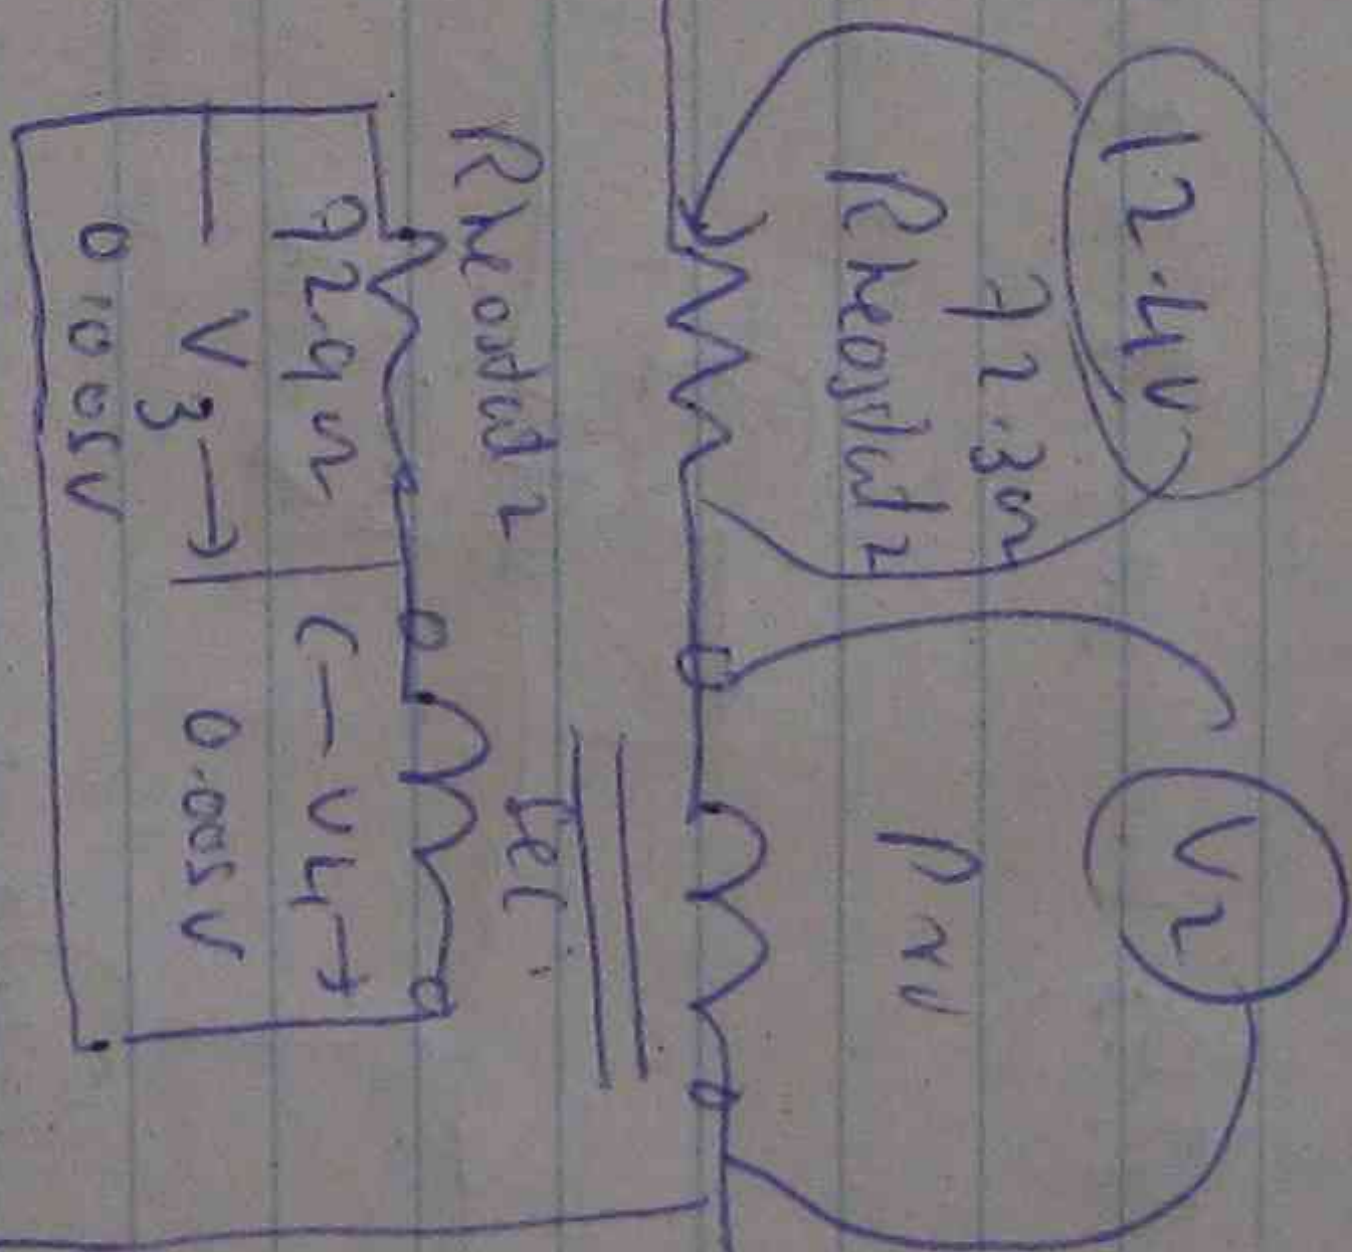 12.4V
72.3Ω
Rheostat 2
V2
Pri
Rheostat 2
Sec
V3 →
0.005V
← V4 →
0.005V